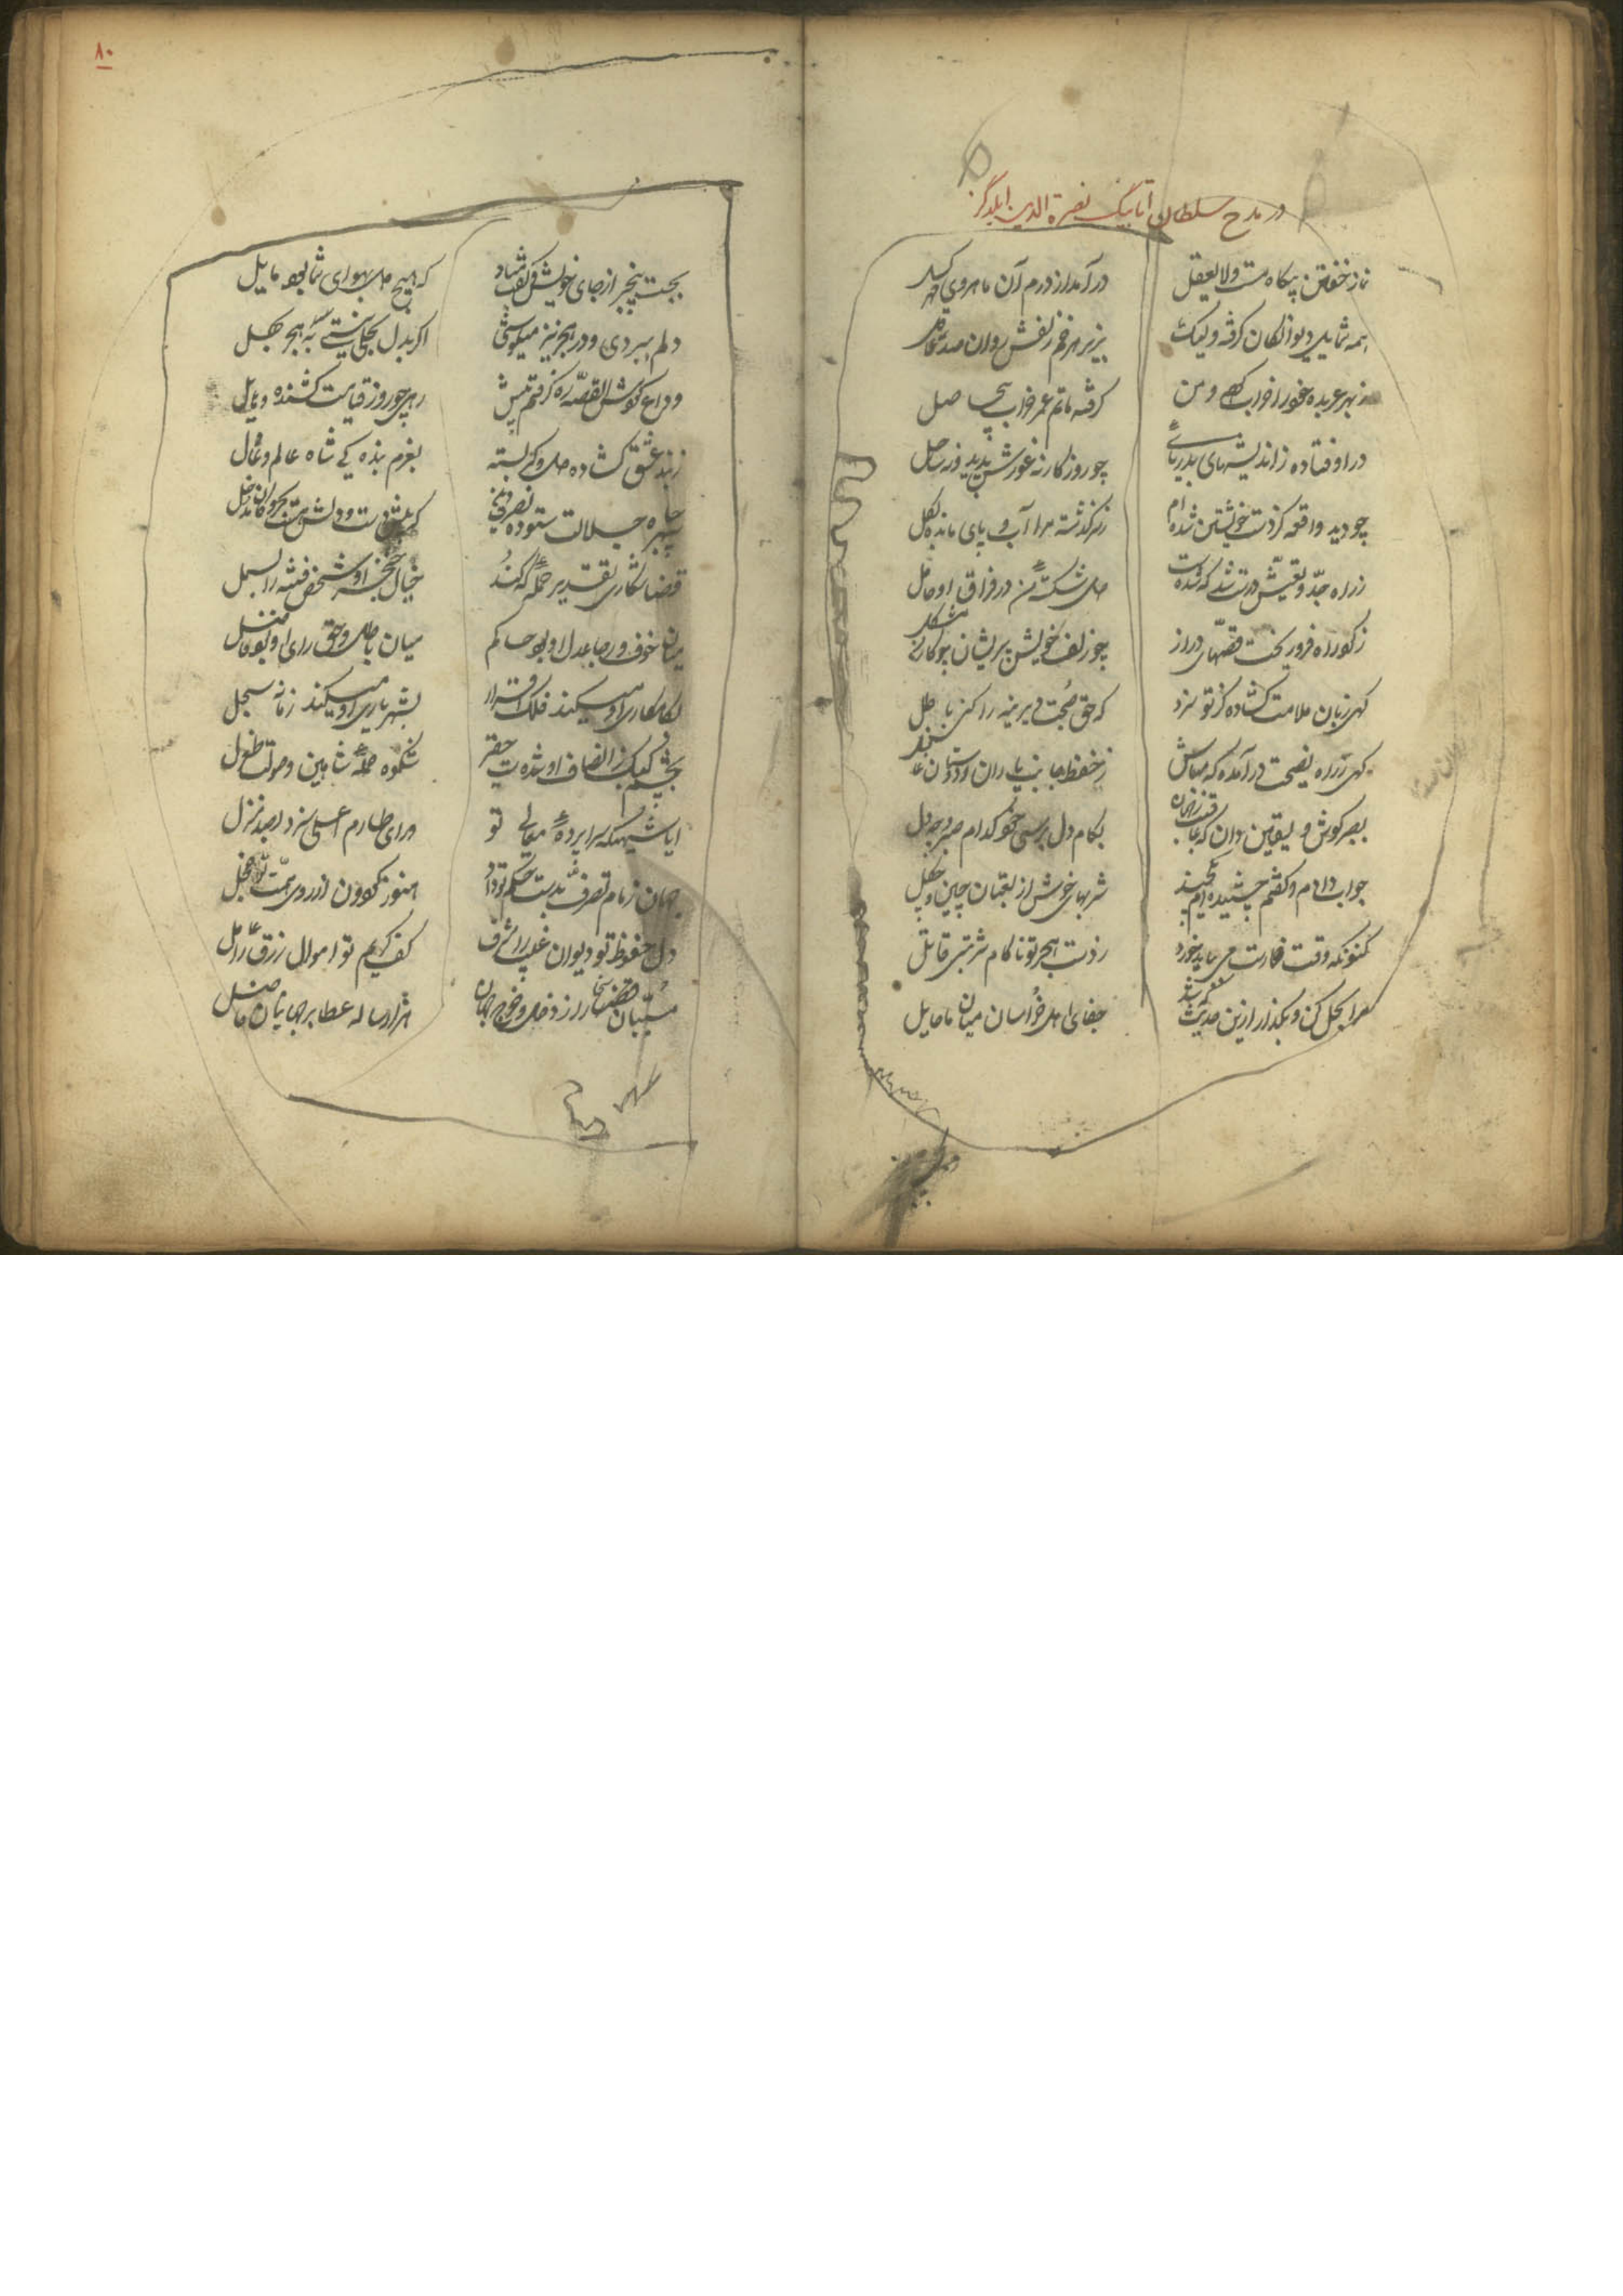 در مدح سلطان اتابیک نصرة الدین ایلدگز
نماز خفتن بیکاه مست ولایعقل درآمد از درم آن ماهروی
همه شمایل دیوانکان کرفته ولیک بزیر هر خم زلفش روان صد عاقل
ز بهر عربده مخمور از خواب و من کرفته ماتم عمر خراب بیحاصل
دراوفتاده ز اندیشهای بدریائی چو روزکار نه غورش پدید و نه ساحل
چو دید واقعه کز دست خویشتن شده‌ام ز سر کذشته مرا آب و پای مانده بکل
ز راه جد و یقینش درست شد که شدست دل شکسته من در فراق او
ز کوه راه فرو ریخت قصهای دراز چو زلف خویش پریشان چو کار من مشکل
کهی زبان ملامت کشاده کز تو سزد که حق صحبت دیرینه را کنی باطل
کهی ز راه نصیحت درآمده که مباش ز حفظ جانب یاران و دوستان غافل
بصبر کوش و یقین دان که بکام دل برسی کفتم کدام صبر و چه دل
جواب دادم و کفتم چشیده‌ام شربهای خوش از لعبتان چین و چکل
کنونکه وقت می بباید خورد ز دست هجر تو ناکام شربتی قاتل
مرا بحل کن و بکذر ازین حدیث جفای اهل خراسان میان ما حایل
۸۰
بجست بیخبر از جای خویش و کفت که هیچ دل بهوای شما بود مایل
دلم ببردی و در هجر نیز میکوشی اکر بدل بحلی نیستی به هجر بهل
وداع کوش القصه ره کرفتم پیش رهی چو روز قیامت کشنده و هایل
زبند عشق کشاده دل و کمر بسته بعزم بندکی شاه عالم و عادل
سپهر جاه و جلالت ستوده نصرة دین
قضا شکاری تقدیر حمله که کند خیال خنجر او شخص فتنه را بسمل
میان خوف و رجا عدل او بود حاکم میان باطل و حق رای او بود فاصل
بکامکاری او میکند فلک اقرار بشهریاری او میکند زمانه سجل
بچشم کبک ز انصاف او شدست حقیر شکوه حمله شاهین و صولت طغرل
ایا شهی که سراپرده معالی تو ورای طارم اعلی سزد بصد منزل
جهان زمام تصرف بدست حکم تو داد هنوز کردون از روی همت تو خجل
دل حفوظ تو دیوان غیب را مشرف کف کریم تو اموال رزق را عامل
هزار ساله عطا بر جهانیان فاضل